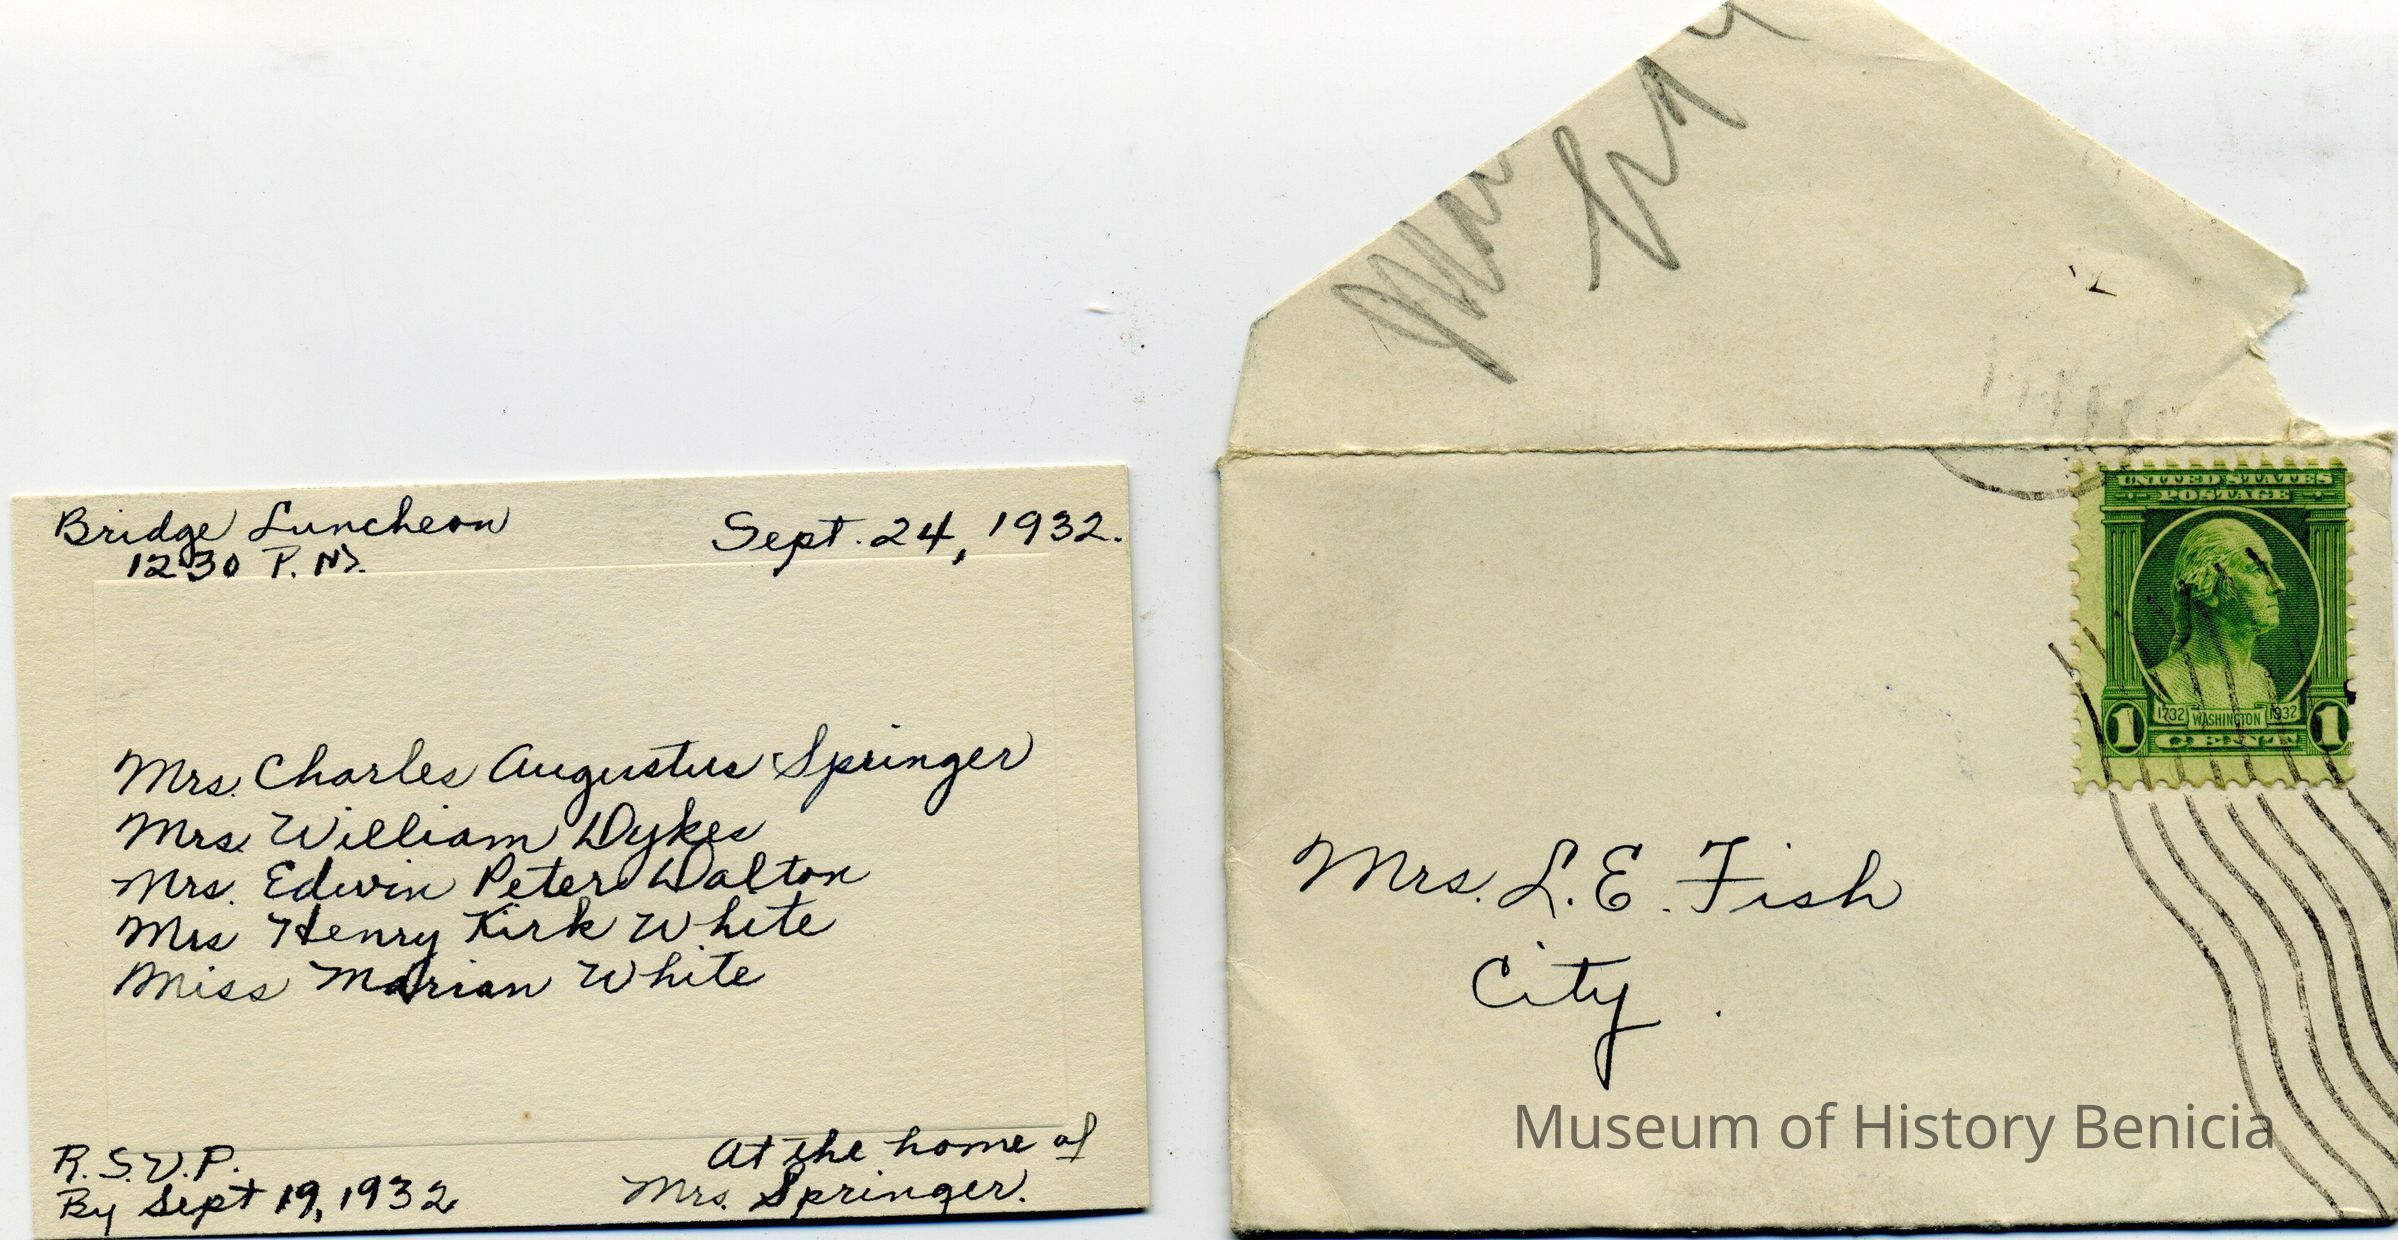 Bridge Luncheon
12 30 P. M.
Sept. 24, 1932.
Mrs. Charles Augustus Springer
Mrs. William Dykes
Mrs. Edwin Peter Dalton
Mrs Henry Kirk White
Miss Marian White
R.S.V.P.
By Sept 19, 1932
At the home of
Mrs. Springer.
UNITED STATES
POSTAGE
1732 WASHINGTON 1932
1 CENT 1
Mrs. L. E. Fish
City.
Museum of History Benicia